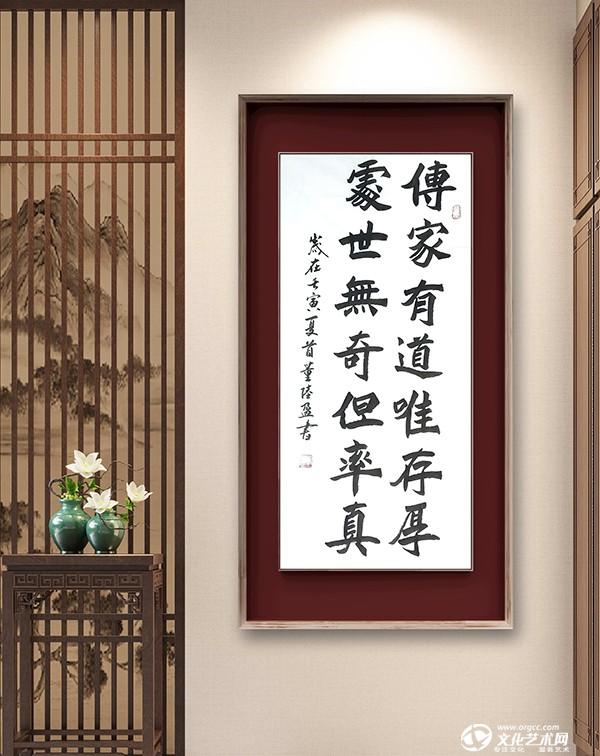 傳家有道唯存厚
處世無奇但率真
歲在壬寅夏首董陸盈書
www.orgcc.com
文化艺术网
专注文化 服务艺术